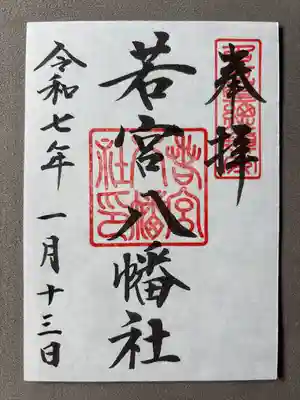 奉拝
若宮八幡社
若宮八幡社印
令和七年 一月十三日